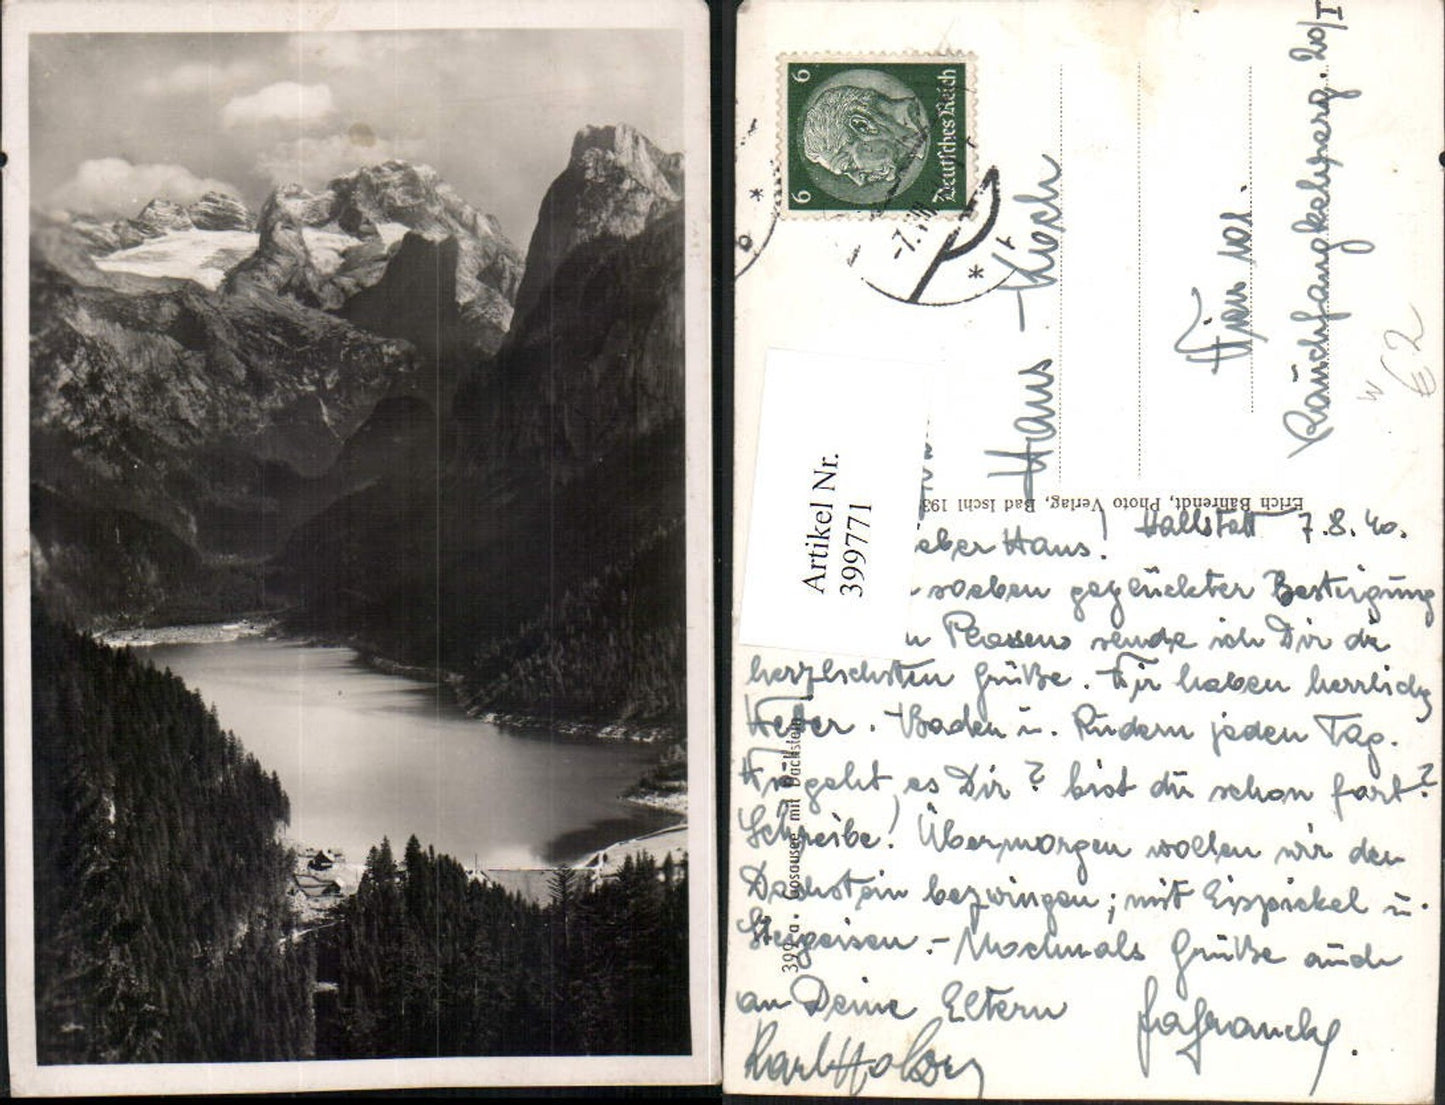 6
6
Deutsches Reich
-7.VIII
Hans Koch
Wien 101.
Rauchfangkehrerg. 20/I
€ 2
W
Artikel Nr.
399771
Erich Bährendt, Photo Verlag, Bad Ischl 193
399 a. Gosausee mit Dachstein
Hallstatt 7.8.40.
eber Hans!
soeben geglückter Besteigung
n Plassens sende ich Dir die
herzlichsten Grüße. Wir haben herrlich
Wetter. Baden u. Rudern jeden Tag.
Wie geht es Dir? bist du schon fort?
Schreibe! Übermorgen wollen wir den
Dachstein bezwingen; mit Eispickel u.
Steigeisen. – Nochmals Grüße auch
an Deine Eltern
Karl